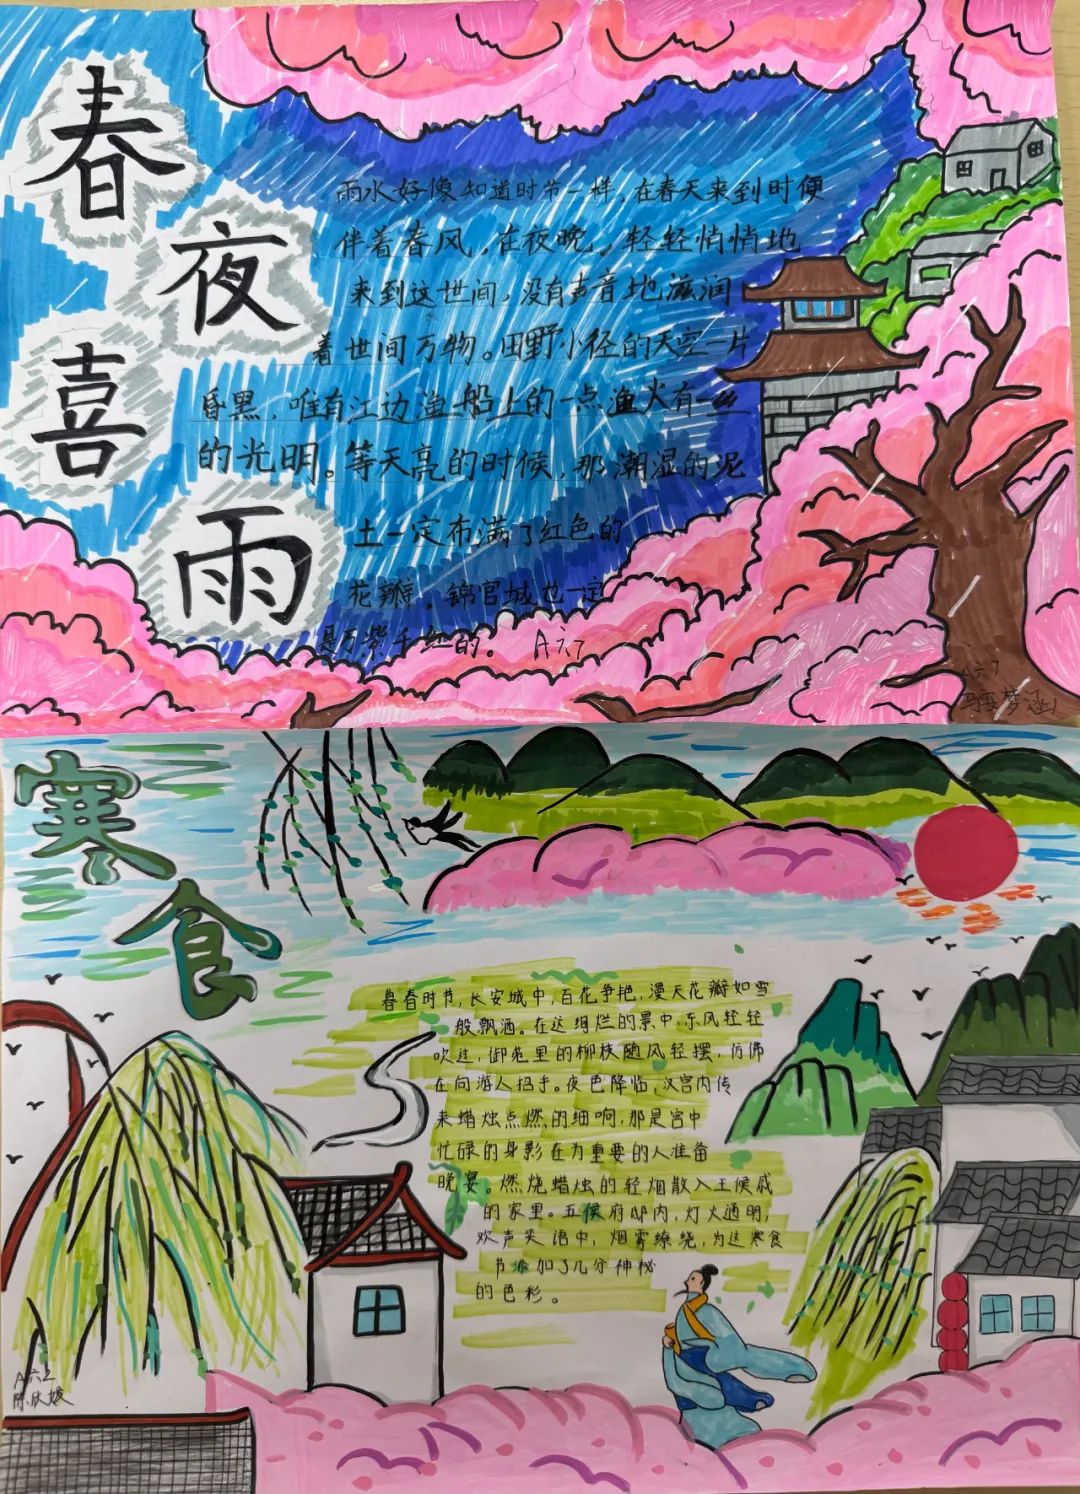 春夜喜雨
雨水好像知道时节一样，在春天来到时便
伴着春风，在夜晚，轻轻悄悄地
来到这世间，没有声音地滋润
着世间万物。田野小径的天空一片
昏黑，唯有江边渔船上的一点渔火有一丝
的光明。等天亮的时候，那潮湿的泥
土一定布满了红色的
花瓣，锦官城也一定
是万紫千红的。 A六7
A六7
寒食
暮春时节，长安城中，百花争艳，漫天花瓣如雪
般飘洒。在这绚烂的景中，东风轻轻
吹过，御苑里的柳枝随风轻摆，仿佛
在向游人招手。夜色降临，汉宫内传
来蜡烛点燃的细响，那是宫中
忙碌的身影在为重要的人准备
晚宴。燃烧蜡烛的轻烟散入王侯戚
的家里。五侯府邸内，灯火通明，
欢声笑语中，烟雾缭绕，为这寒食
节添加了几分神秘
的色彩。
A六2
陈欣媛